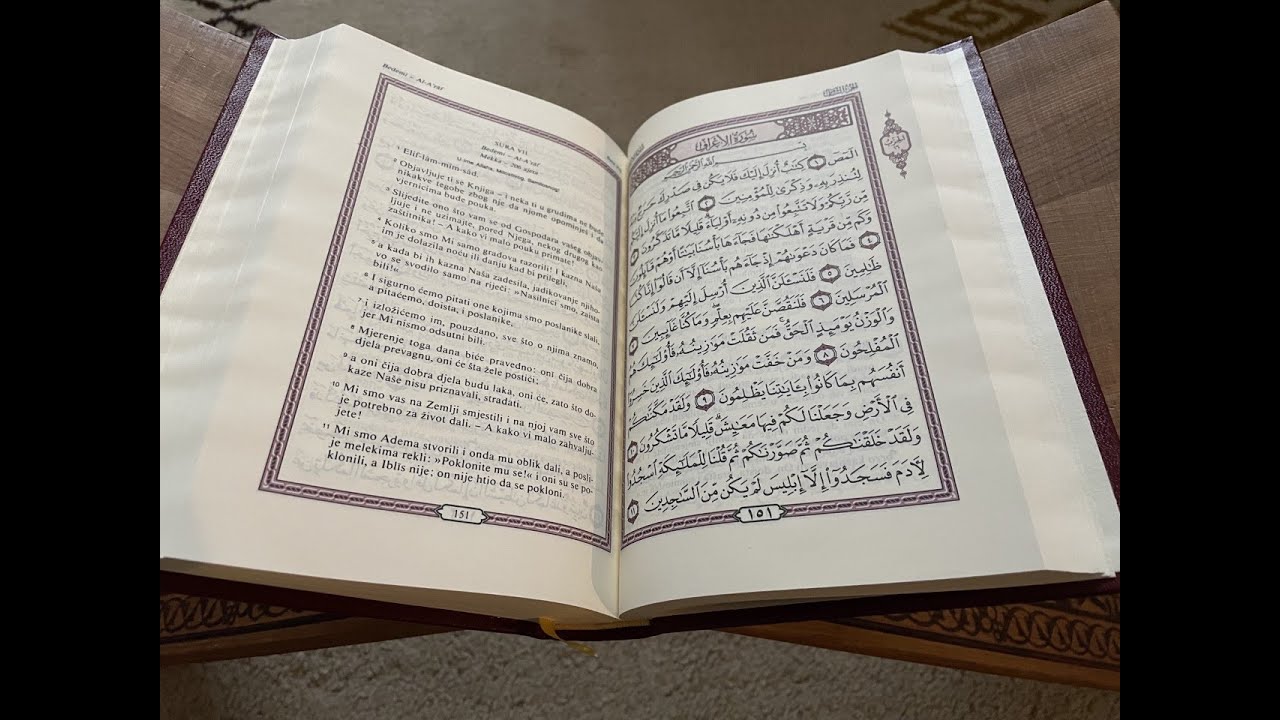 Bedemi – Al-A'raf
SURA VII
Bedemi – Al-A'raf
Mekka – 206 ajeta
U ime Allaha, Milostivog, Samilosnog!
1 Elif-lām-mīm-sād.
2 Objavljuje ti se Knjiga – i neka ti u grudima ne bude
nikakve tegobe zbog nje da njome opominješ i da
vjernicima bude pouka.
3 Slijedite ono što vam se od Gospodara vašeg objav-
ljuje i ne uzimajte, pored Njega, nekog drugog kao
zaštitnika! – A kako vi malo pouku primate!
4 Koliko smo Mi samo gradova razorili! I kazna Naša
im je dolazila noću ili danju kad bi prilegli,
5 a kada bi ih kazna Naša zadesila, jadikovanje njiho-
vo se svodilo samo na riječi: »Nasilnici smo, zaista
bili!«
6 I sigurno ćemo pitati one kojima smo poslanike slali,
a pitaćemo, doista, i poslanike,
7 i izložićemo im, pouzdano, sve što o njima znamo,
jer Mi nismo odsutni bili.
8 Mjerenje toga dana biće pravedno: oni čija dobra
djela prevagnu, oni će šta žele postići;
9 a oni čija dobra djela budu laka, oni će, zato što do-
kaze Naše nisu priznavali, stradati.
10 Mi smo vas na Zemlji smjestili i na njoj vam sve što
je potrebno za život dali. – A kako vi malo zahvalju-
jete!
11 Mi smo Adema stvorili i onda mu oblik dali, a poslij-
je melekima rekli: »Poklonite mu se!« i oni su se po-
klonili, a Iblis nije: on nije htio da se pokloni.
151
سُورَةُ الأَعْرَافِ
بِسْمِ اللَّهِ الرَّحْمَٰنِ الرَّحِيمِ
الٓمٓصٓ ١ كِتَٰبٌ أُنزِلَ إِلَيْكَ فَلَا يَكُن فِى صَدْرِكَ حَرَجٌ مِّنْهُ
لِتُنذِرَ بِهِۦ وَذِكْرَىٰ لِلْمُؤْمِنِينَ ٢ ٱتَّبِعُوا۟ مَآ أُنزِلَ
مِّن رَّبِّكُمْ وَلَا تَتَّبِعُوا۟ مِن دُونِهِۦٓ أَوْلِيَآءَ ۗ قَلِيلًا مَّا تَذَكَّرُونَ
وَكَم مِّن قَرْيَةٍ أَهْلَكْنَٰهَا فَجَآءَهَا بَأْسُنَا بَيَٰتًا أَوْ هُمْ قَآئِلُونَ
٤ فَمَا كَانَ دَعْوَىٰهُمْ إِذْ جَآءَهُم بَأْسُنَآ إِلَّآ أَن قَالُوٓا۟ إِنَّا كُنَّا
ظَٰلِمِينَ ٥ فَلَنَسْـَٔلَنَّ ٱلَّذِينَ أُرْسِلَ إِلَيْهِمْ وَلَنَسْـَٔلَنَّ
ٱلْمُرْسَلِينَ ٦ فَلَنَقُصَّنَّ عَلَيْهِم بِعِلْمٍ ۖ وَمَا كُنَّا غَآئِبِينَ
وَٱلْوَزْنُ يَوْمَئِذٍ ٱلْحَقُّ ۚ فَمَن ثَقُلَتْ مَوَٰزِينُهُۥ فَأُو۟لَٰٓئِكَ هُمُ
ٱلْمُفْلِحُونَ ٨ وَمَنْ خَفَّتْ مَوَٰزِينُهُۥ فَأُو۟لَٰٓئِكَ ٱلَّذِينَ خَسِرُوٓا۟
أَنفُسَهُم بِمَا كَانُوا۟ بِـَٔايَٰتِنَا يَظْلِمُونَ ٩ وَلَقَدْ مَكَّنَّٰكُمْ
فِى ٱلْأَرْضِ وَجَعَلْنَا لَكُمْ فِيهَا مَعَٰيِشَ ۗ قَلِيلًا مَّا تَشْكُرُونَ ١٠
وَلَقَدْ خَلَقْنَٰكُمْ ثُمَّ صَوَّرْنَٰكُمْ ثُمَّ قُلْنَا لِلْمَلَٰٓئِكَةِ ٱسْجُدُوا۟
لِءَادَمَ فَسَجَدُوٓا۟ إِلَّآ إِبْلِيسَ لَمْ يَكُن مِّنَ ٱلسَّٰجِدِينَ ١١
١٥١